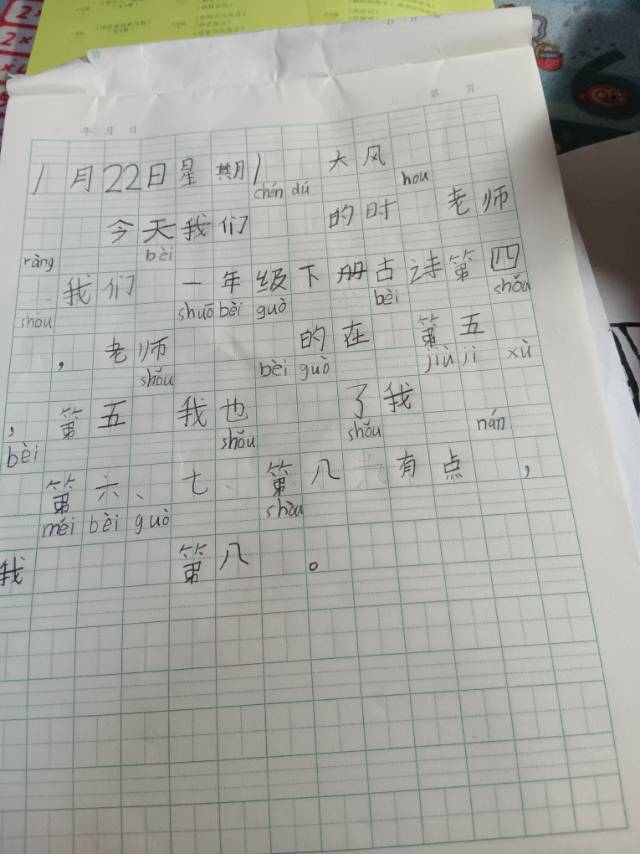 年 月 日 第 页
1月22日星期1 大风
chén dú hou
今天我们 的时 老师
ràng bèi
我们 一年级下册古诗第四
shou shuō bèi guò bèi shǒu
,老师 的在 第五
shǒu bèi guò jiù ji xù
,第五 我也 了我
bèi shǒu shǒu nán
第六、七、第八九有点,
méi bèi guò shǒu
我 第八 。